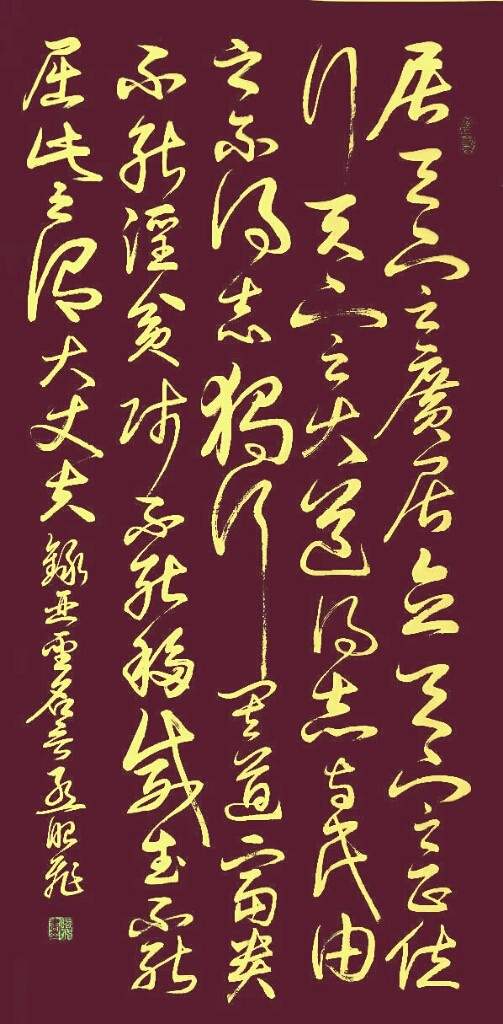 居天下之廣居立天下之正位
行天下之大道得志与民由
之不得志獨行其道富貴
不能淫貧賤不能移威武不能
屈此之謂大丈夫錄亞聖名言